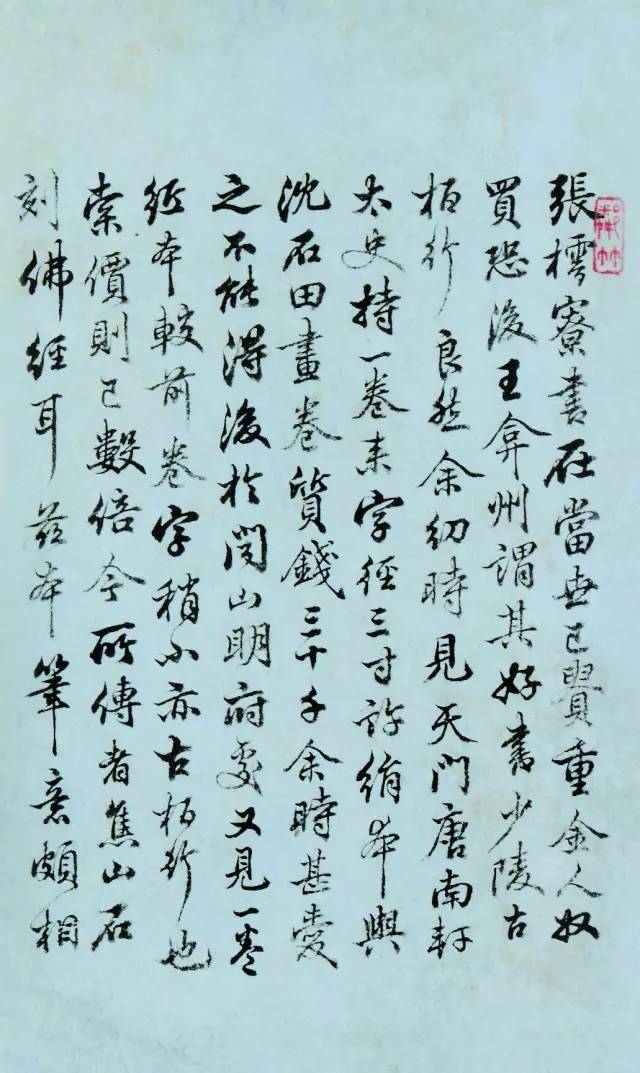 張樗寮書在當世已貴重金人奴
買恐後王弇州謂其好書少陵古
栢行良然余幼時見天門唐南軒
太史持一卷來字徑三寸許絹本與
沈石田畫卷質錢三十千余時甚愛
之不能得後於閆山明府處又見一卷
紙本較前卷字稍小亦古栢行也
索價則已數倍今所傳者焦山石
刻佛經耳茲本筆意頗相